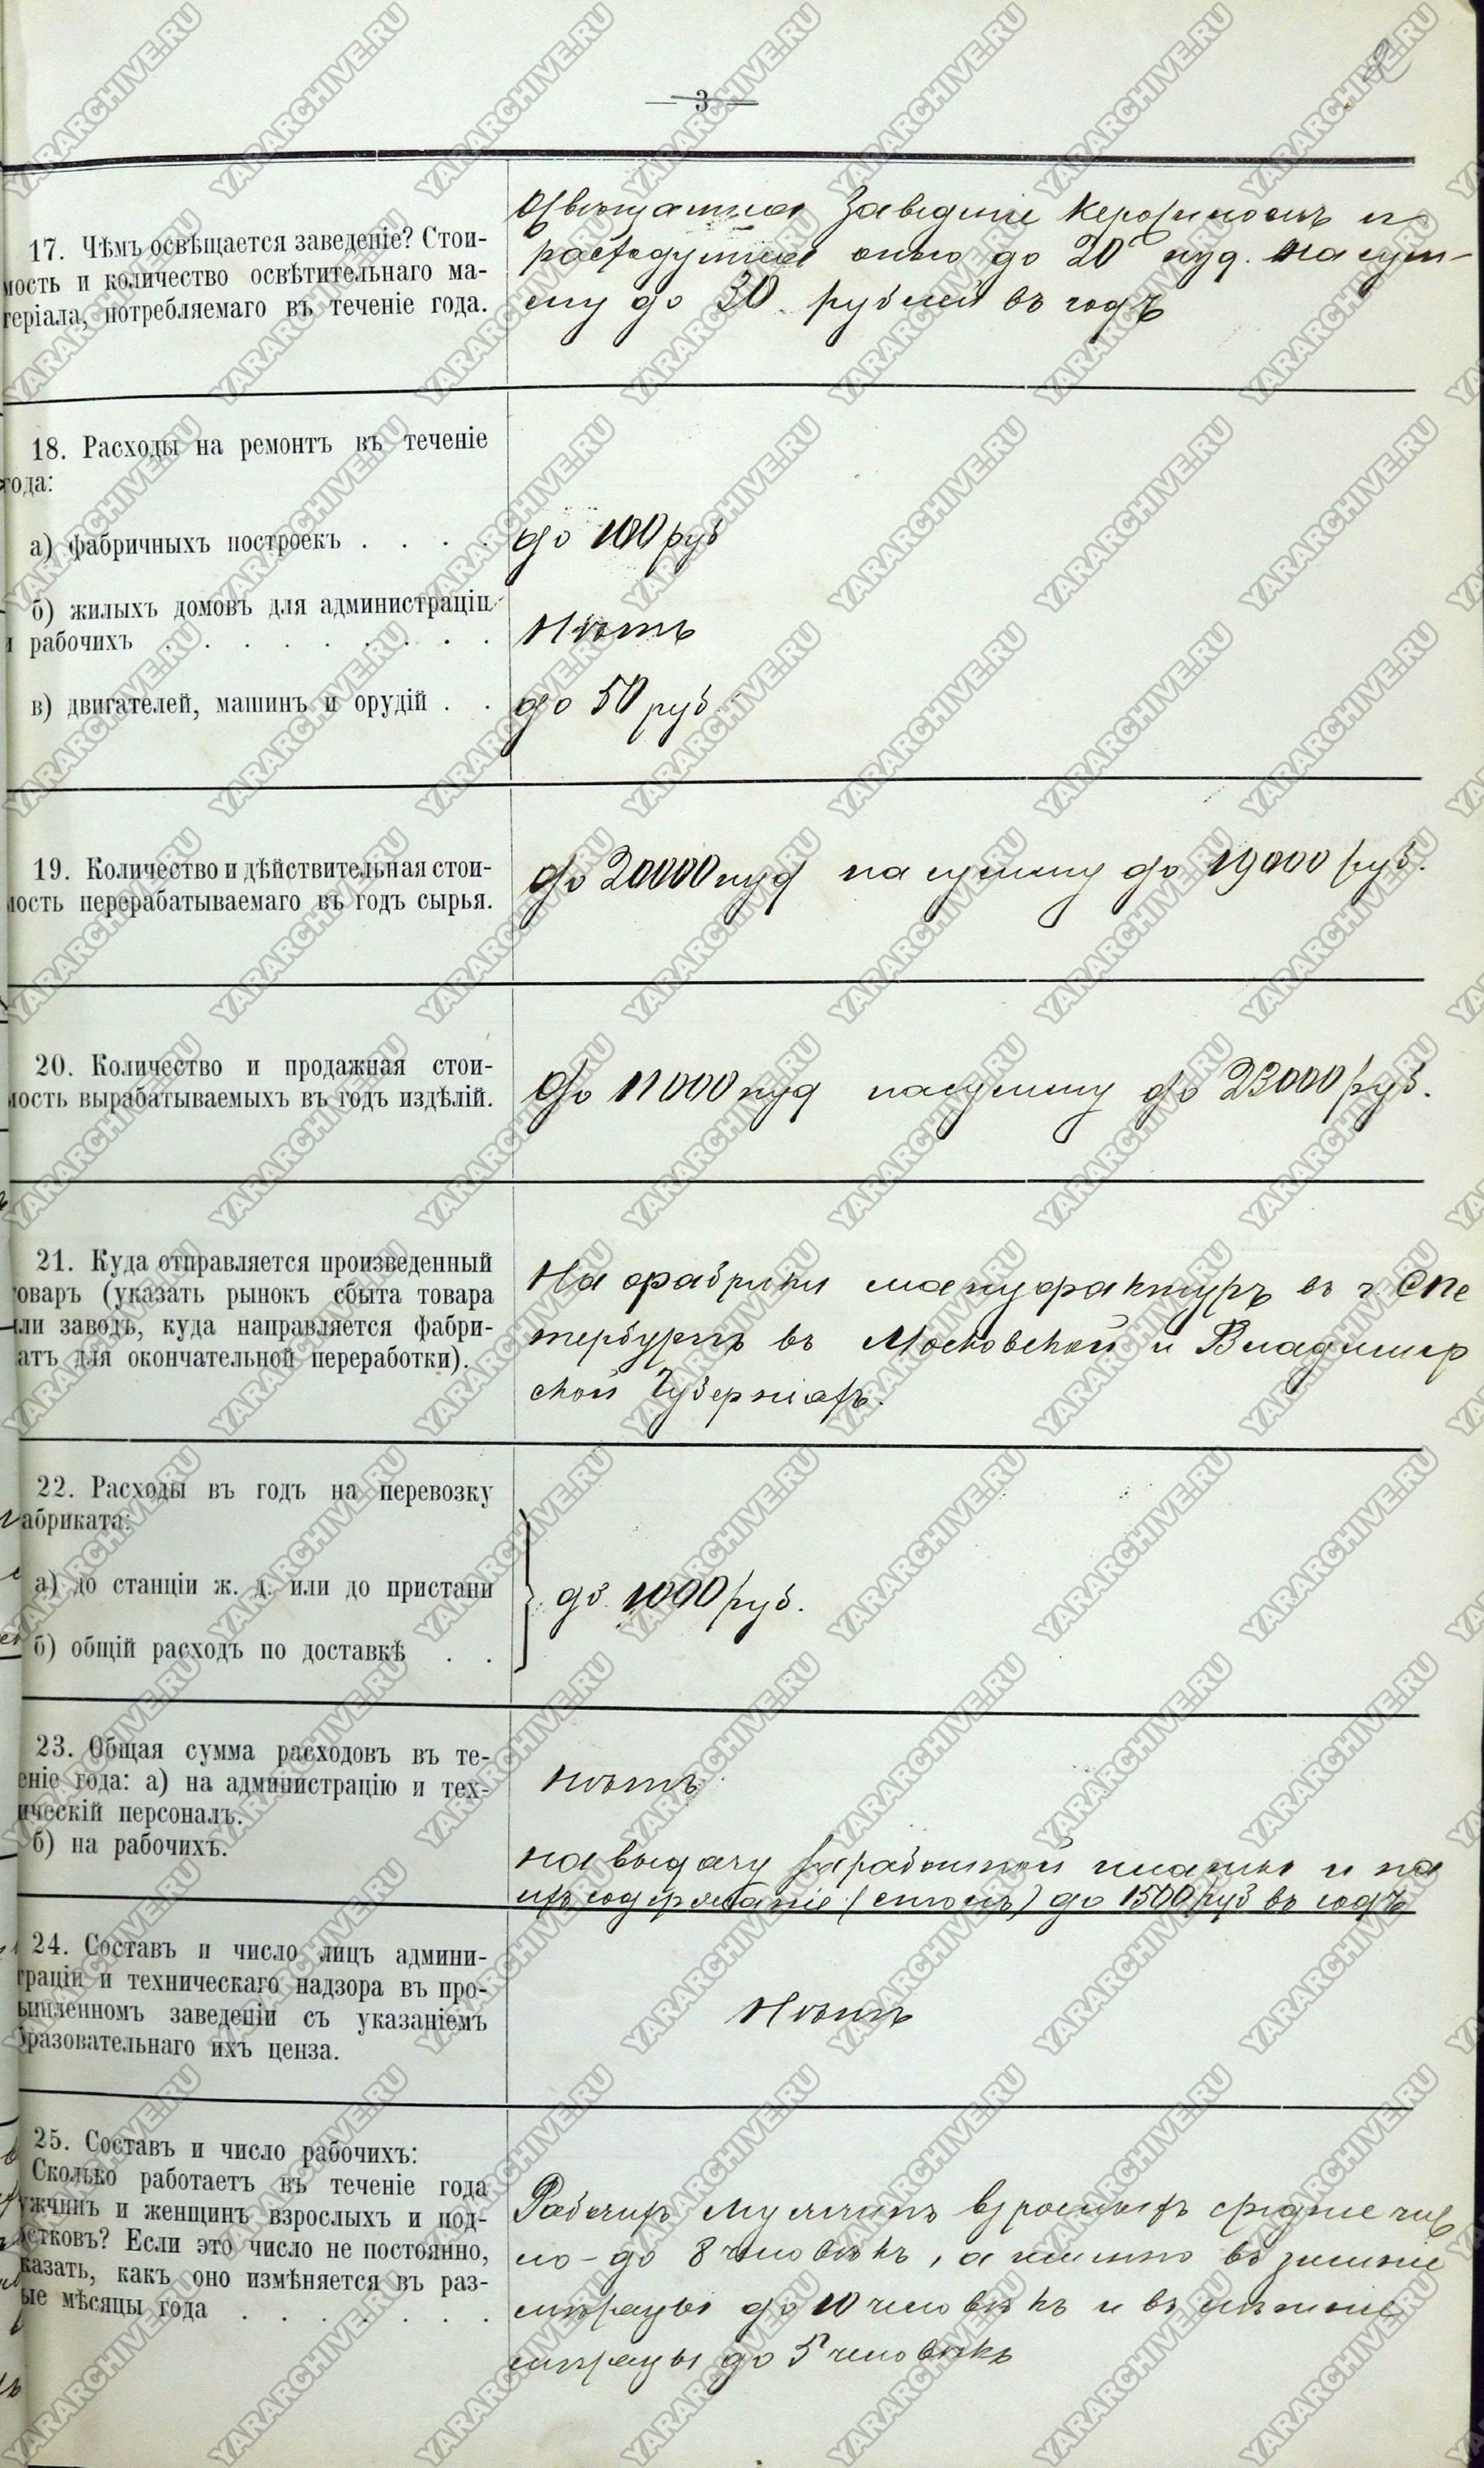 — 3 —
17. Чѣмъ освѣщается заведеніе? Стои-
мость и количество освѣтительнаго ма-
теріала, потребляемаго въ теченіе года.
Освѣщаится Завединіе Керосиномъ и
расходуится онаго до 20 пуд. на сум-
му до 30 рублей въ годъ
18. Расходы на ремонтъ въ теченіе
года:
а) фабричныхъ построекъ . . . .
до 100 руб
б) жилыхъ домовъ для администраціи
и рабочихъ . . . . . . . . .
Нѣтъ
в) двигателей, машинъ и орудій . .
до 50 руб.
19. Количество и дѣйствительная стои-
мость перерабатываемаго въ годъ сырья.
до 20000 пуд на сумму до 19000 руб.
20. Количество и продажная стои-
мость вырабатываемыхъ въ годъ издѣлій.
до 11000 пуд на сумму до 23000 руб.
21. Куда отправляется произведенный
товаръ (указать рынокъ сбыта товара
или заводъ, куда направляется фабри-
катъ для окончательной переработки).
На фабрики мануфактуръ въ г. Спе
тербургъ въ Московской и Владимир
ской Губерніяхъ.
22. Расходы въ годъ на перевозку
фабриката:
а) до станціи ж. д. или до пристани
б) общій расходъ по доставкѣ . .
до 1000 руб.
23. Общая сумма расходовъ въ те-
ченіе года: а) на администрацію и тех-
ническій персоналъ.
нѣтъ
б) на рабочихъ.
на выдачу заработной платы и на
ихъ содержаніе (столъ) до 1500 руб въ годъ
24. Составъ и число лицъ админи-
страціи и техническаго надзора въ про-
мышленномъ заведеніи съ указаніемъ
образовательнаго ихъ ценза.
Нѣтъ
25. Составъ и число рабочихъ:
Сколько работаетъ въ теченіе года
мужчинъ и женщинъ взрослыхъ и под-
ростковъ? Если это число не постоянно,
указать, какъ оно измѣняется въ раз-
ные мѣсяцы года . . . . . . .
Рабочихъ мужчинъ взрослыхъ среднее чис
ло - до 8 человѣкъ, а именно въ зимніе
мѣсяцы до 10 человѣкъ и въ лѣтніе
мѣсяцы до 5 человѣкъ
YARARCHIVE.RU